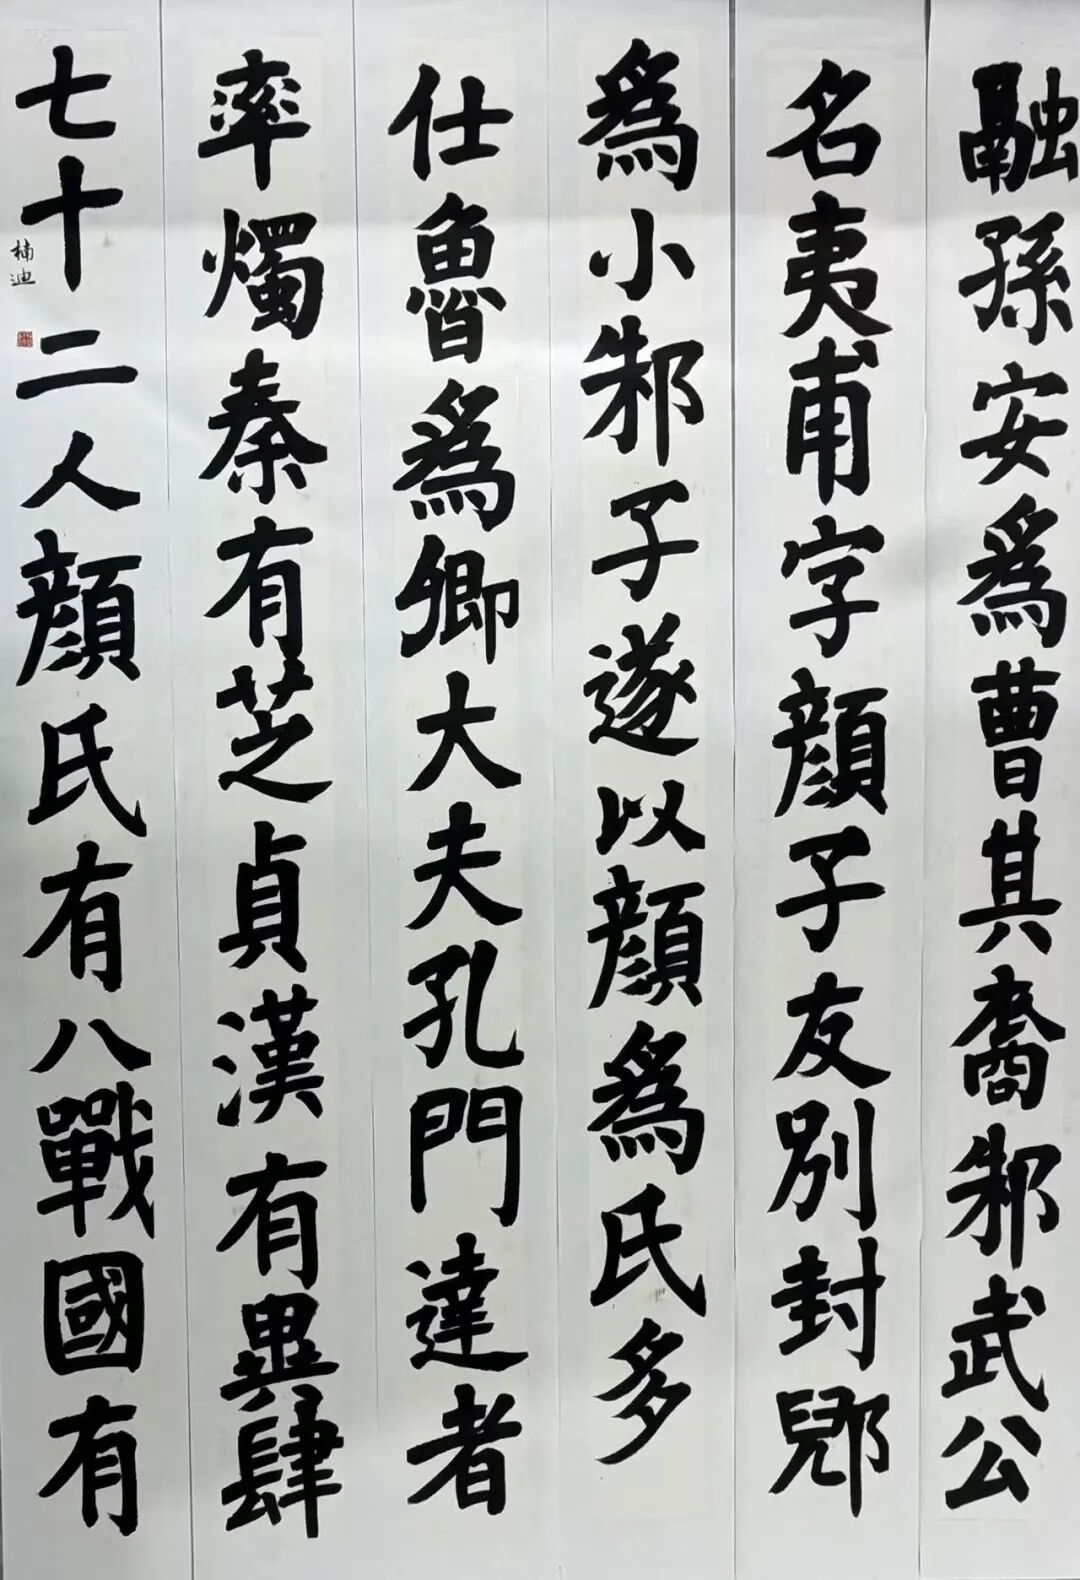 融孫安為曹其裔邾武公
名夷甫字顏子友別封郳
為小邾子遂以顏為氏多
仕魯為卿大夫孔門達者
七十二人顏氏有八戰國有
率燭秦有芝貞漢有異肆
楠迪